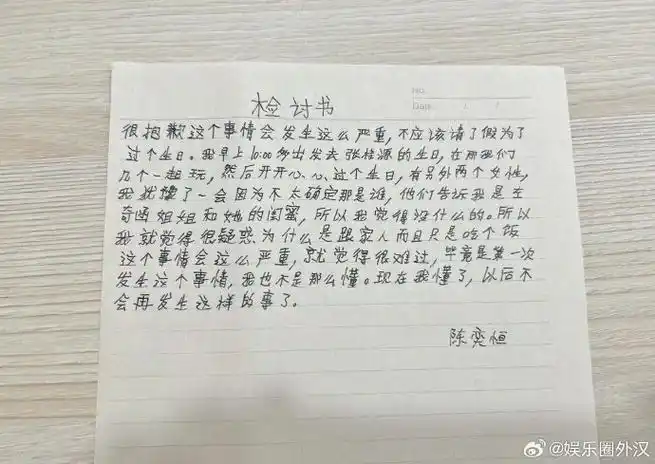 No.
Date / /
检讨书
很抱歉这个事情会发生这么严重,不应该请了假为了
过个生日。我早上10:00多出发去张桂源的生日,在那我们
几个一起玩,然后开开心心过个生日,有另外两个女性,
我犹豫了一会因为不太确定那是谁,他们告诉我是左
奇函姐姐和她的闺蜜,所以我觉得没什么的。所以
我就觉得很疑惑为什么是跟家人而且只是吃个饭
这个事情会这么严重,就觉得很难过,毕竟是第一次
发生这个事情,我也不是那么懂。现在我懂了,以后不
会再发生这样的事了。
陈奕恒
@娱乐圈外汉